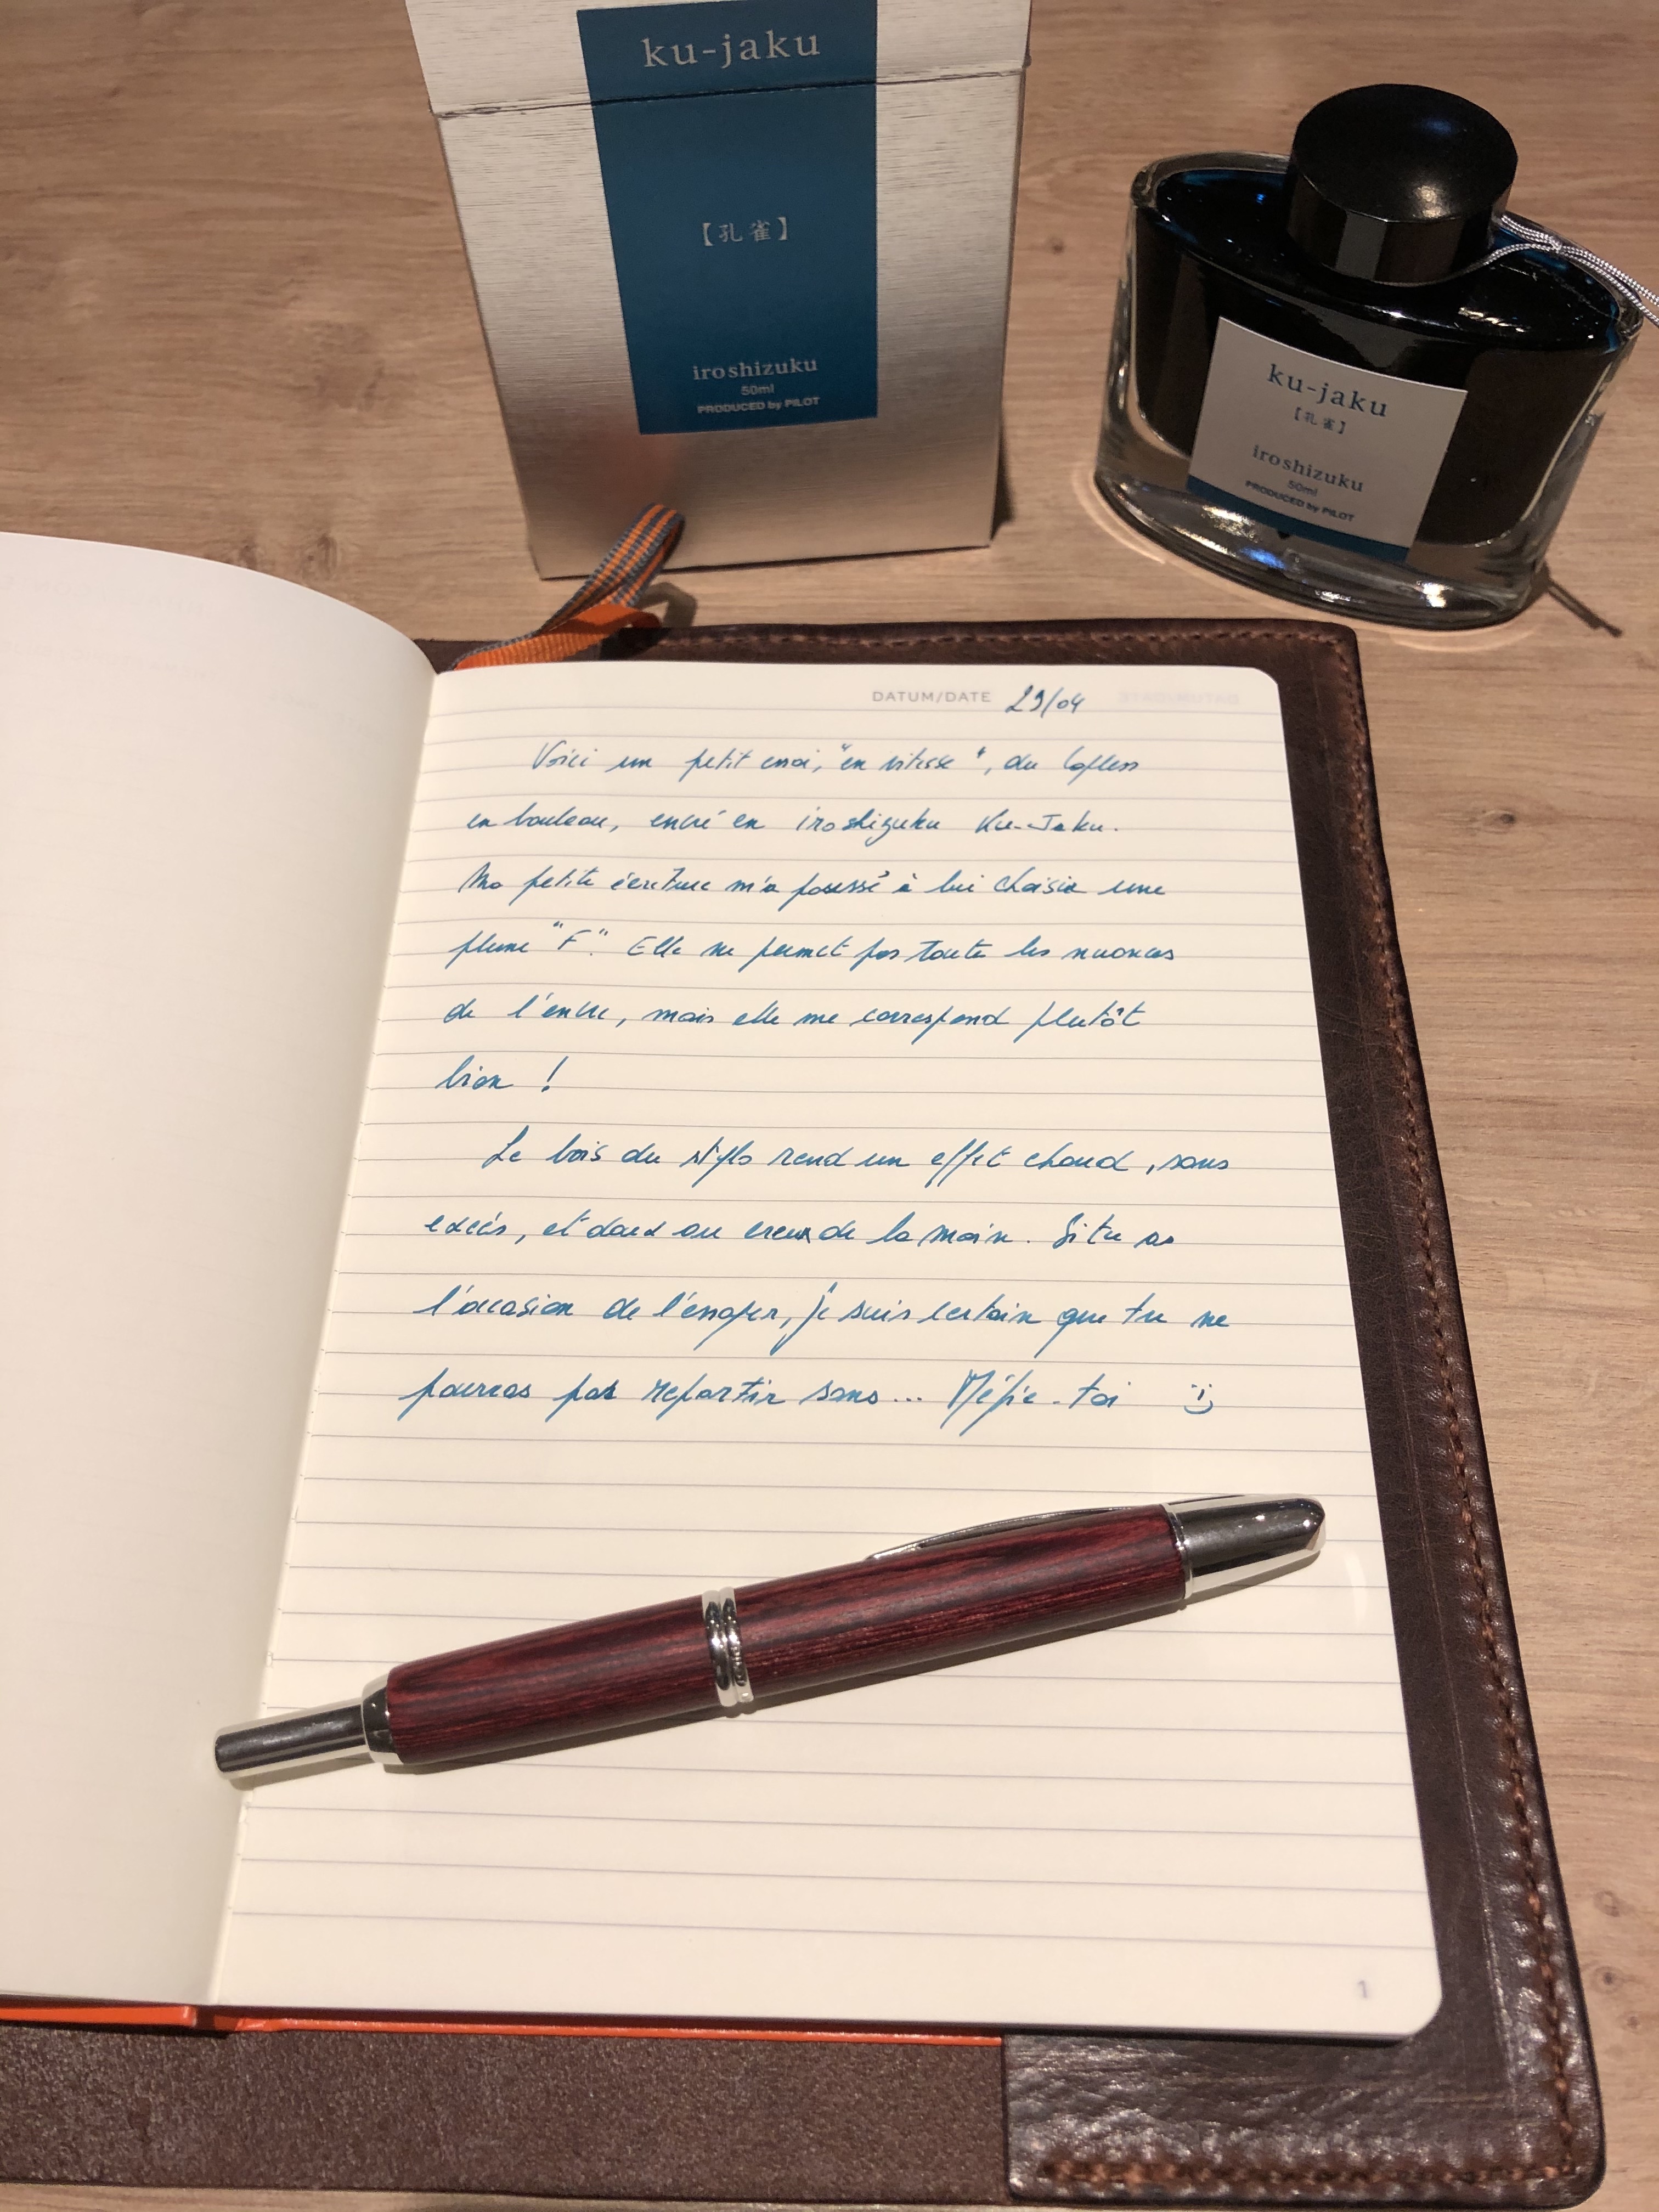 ku-jaku
【孔雀】
iroshizuku
50ml
PRODUCED by PILOT
ku-jaku
【孔雀】
iroshizuku
50ml
PRODUCED by PILOT
DATUM/DATE 29/04
Voici un petit essai, "en vitesse", du Capless
en bouleau, encré en iroshizuku Ku-Jaku.
Ma petite écriture m'a poussé à lui choisir une
plume "F". Elle ne permet pas toute les nuances
de l'encre, mais elle me correspond plutôt
bien !
Le bois du stylo rend un effet chaud, sans
excès, et doux au creux de la main. Si tu as
l'occasion de l'essayer, je suis certain que tu ne
pourras pas repartir sans... Méfie-toi :)
1